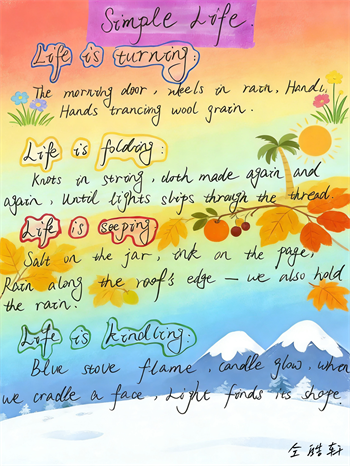 Simple Life.
Life is turning:
The morning door, wheels in rain, Hands,
Hands trancing wool grain.
Life is folding:
Knots in string, cloth made again and
again, Until lights slips through the thread.
Life is seeping
Salt on the jar, ink on the page,
Rain along the roof's edge — we also hold
the rain.
Life is kindling:
Blue stove flame, candle glow, when
we cradle a face, Light finds its shape.